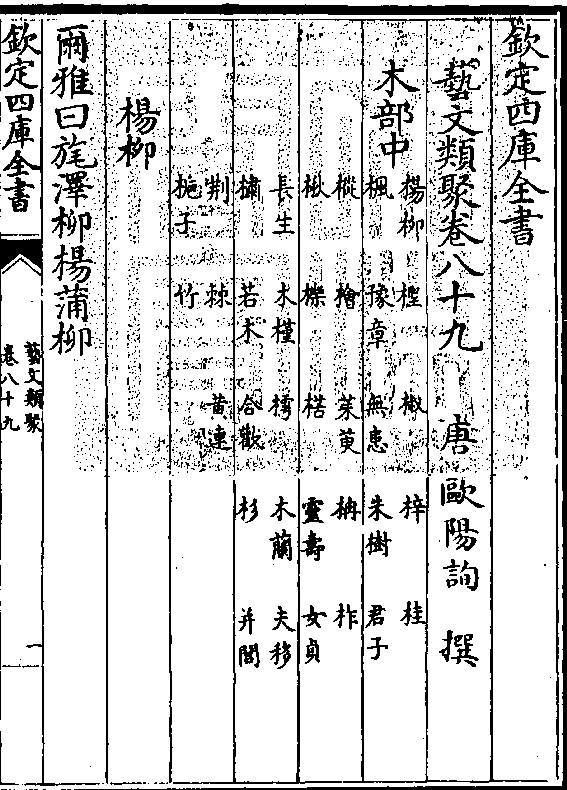 欽定四庫全書
藝文類聚卷八十九 唐 歐陽詢 撰
木部中
楊柳 檉 椒 梓 桂
楓 豫章 無患 朱樹 君子
樅 檜 茱萸 枏 柞
楸 櫟 楛 靈壽 女貞
長生 木槿 橋 木蘭 夫栘
橚 若木 合歡 杉 并閭
荆 棘 黄連
梔子 竹
楊柳
爾雅曰旄澤柳楊蒲柳
欽定四庫全書
藝文類聚
卷八十九
一